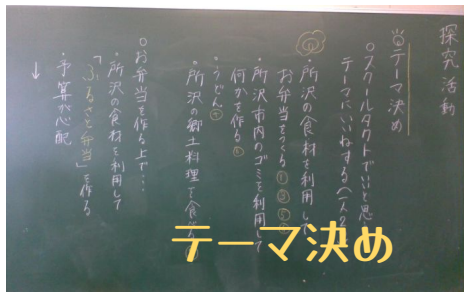 探究活動
当テーマ決め
○スクールタクトでいいと思
テーマにいいねする(一人2
・所沢の食材を利用して
お弁当をつくる
・所沢市内のゴミを利用して
何かを作る
・うどん
・所沢の郷土料理を食べ
○お弁当を作る上で…
・所沢の食材を利用して
「ふるさと弁当」を作る
・予算が心配
↓
テーマ決め